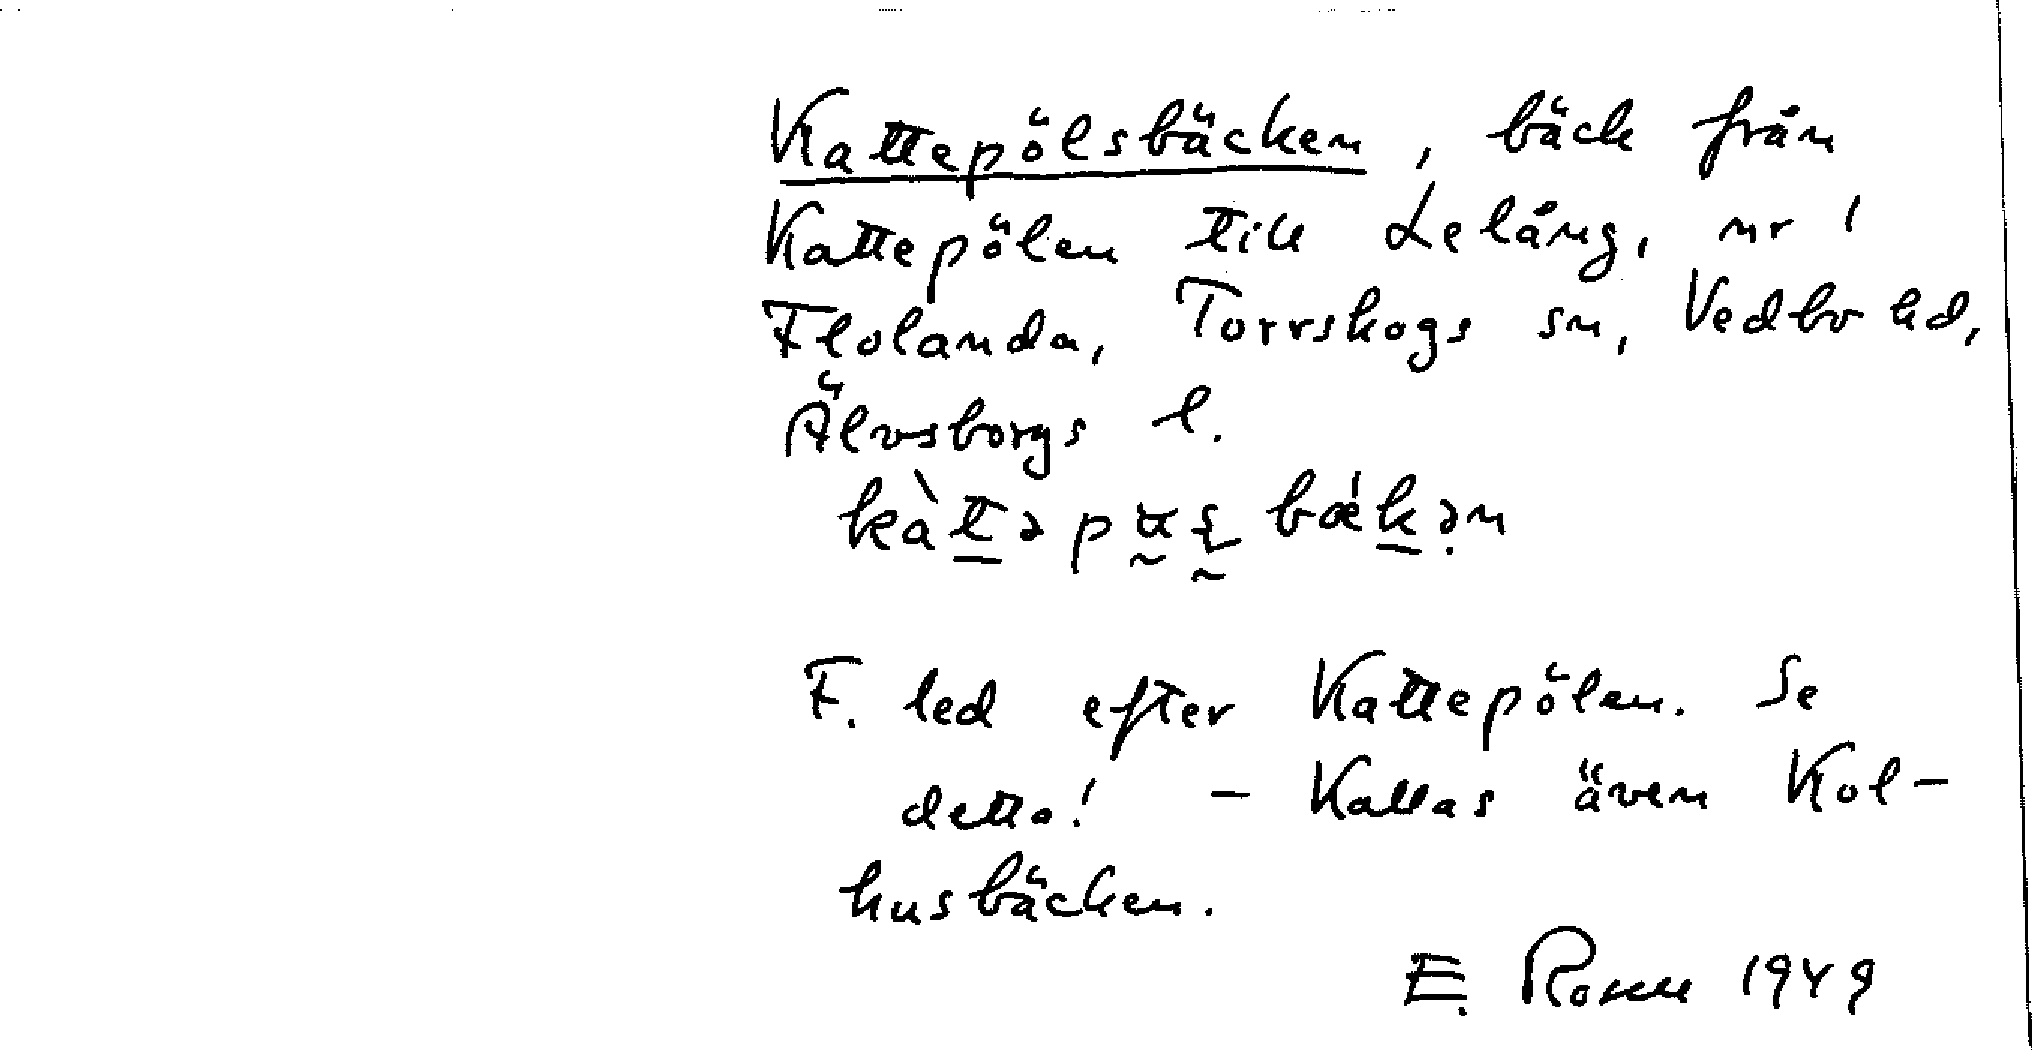 Kattepölsbäcken, bäck från
Kattepölen till Lelång, nr 1
Flolanda, Torrskogs sn, Vedbo hd,
Älvsborgs l.
F. led efter Kattepölen. Se
detta! - Kallas även Kol-
husbäcken.
E. Rosell 1949